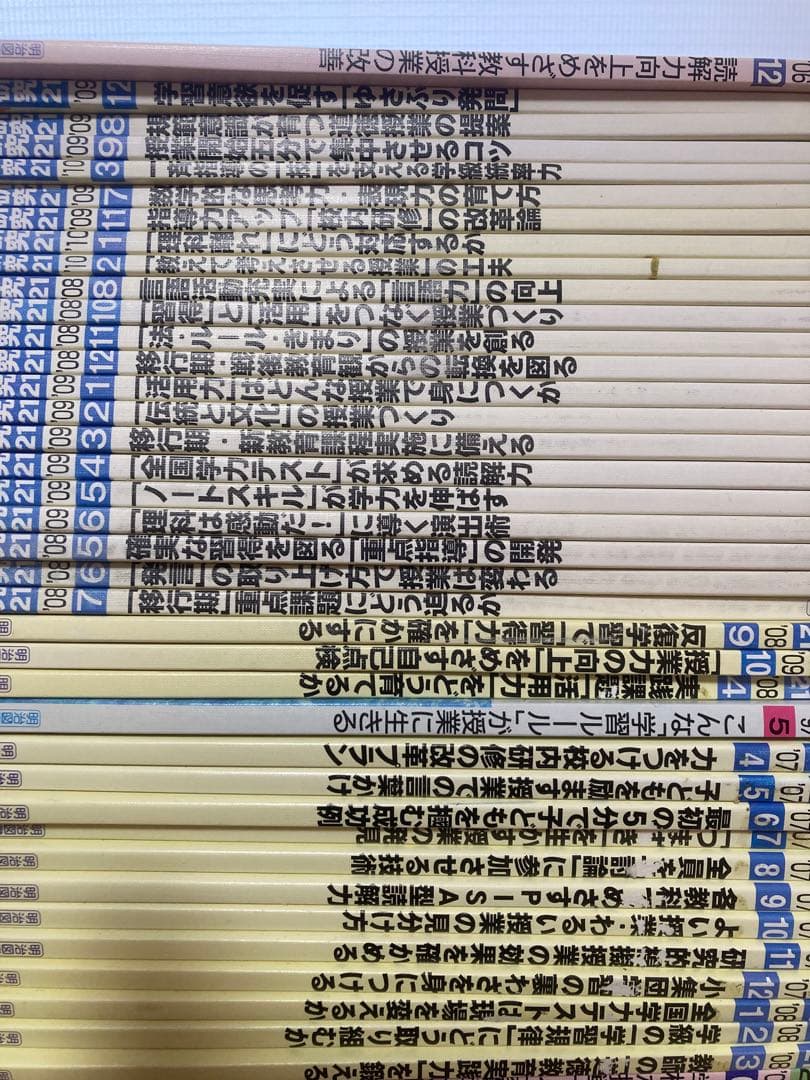 読解力向上をめざす教科授業の改善 12 '06 明治図
究21 '09 12 学習意欲を促す「ゆさぶり発問」
研究21 '09 8 規範意識が育つ道徳授業の提案
究21 '09 9 授業開始五分で集中させるコツ
究21 '10 3
研究21 '09 7 数学的な思考力・表現力の育て方
究21 '09 11 指導力アップ「校内研修」の改革論
究21 '10 1 「理科離れ」にどう対応するか
究21 '10 2 「教えて考えさせる授業」の工夫
究21 '08 8 言語活動充実による「言語力」の向上
究21 '08 10 「習得」と「活用」をつなぐ授業づくり
究21 '08 11 「法・ルール・きまり」の授業を創る
究21 '08 12 移行期・戦後教育観からの転換を図る
究21 '09 1 「活用力」はどんな授業で身につくか
究21 '09 2 「伝統と文化」の授業づくり
究21 '09 3 移行期・新教育課程実施に備える
究21 '09 4 「全国学力テスト」が求める読解力
究21 '09 5 「ノートスキル」が学力を伸ばす
究21 '09 6 「理科は感動だ!」に導く演出術
究21 '08 5 確実な習得を図る「重点指導」の開発
究21 '08 6 「発言」の取り上げ方で授業は変わる
21 '08 7 「移行期」重点課題にどう迫るか
反復学習で「習得力」を確かにする 9 '08 明
「授業力の向上」をめざす自己点検 10 '09 明
実践課題「活用力」をどう育てるか 4 '08 明
こんな「学習ルール」が授業に生きる 5 明治図
力をつける校内研修の改革プラン 4 '07 明
子どもを励ます授業での言葉かけ 5 '07 明
最初の5分で子どもを掴む成功例 6 '07 明
「つまずき」を生かす授業の発見 7 明治図
全員を「討論」に参加させる技術 8 '07 明
各教科でめざすPISA型読解力 9 明
よい授業・わるい授業の見分け方 10 明
研究的 授業の効果を確かめる 11 明
小集団学習の裏わざを身につける 12 '07 明
全国学力テストは現場を変えるか 1 '08 明
学級の「学習規律」にどう取り組むか 2 '08 明
教師の「道徳教育実践力」を鍛える 3 '08 明